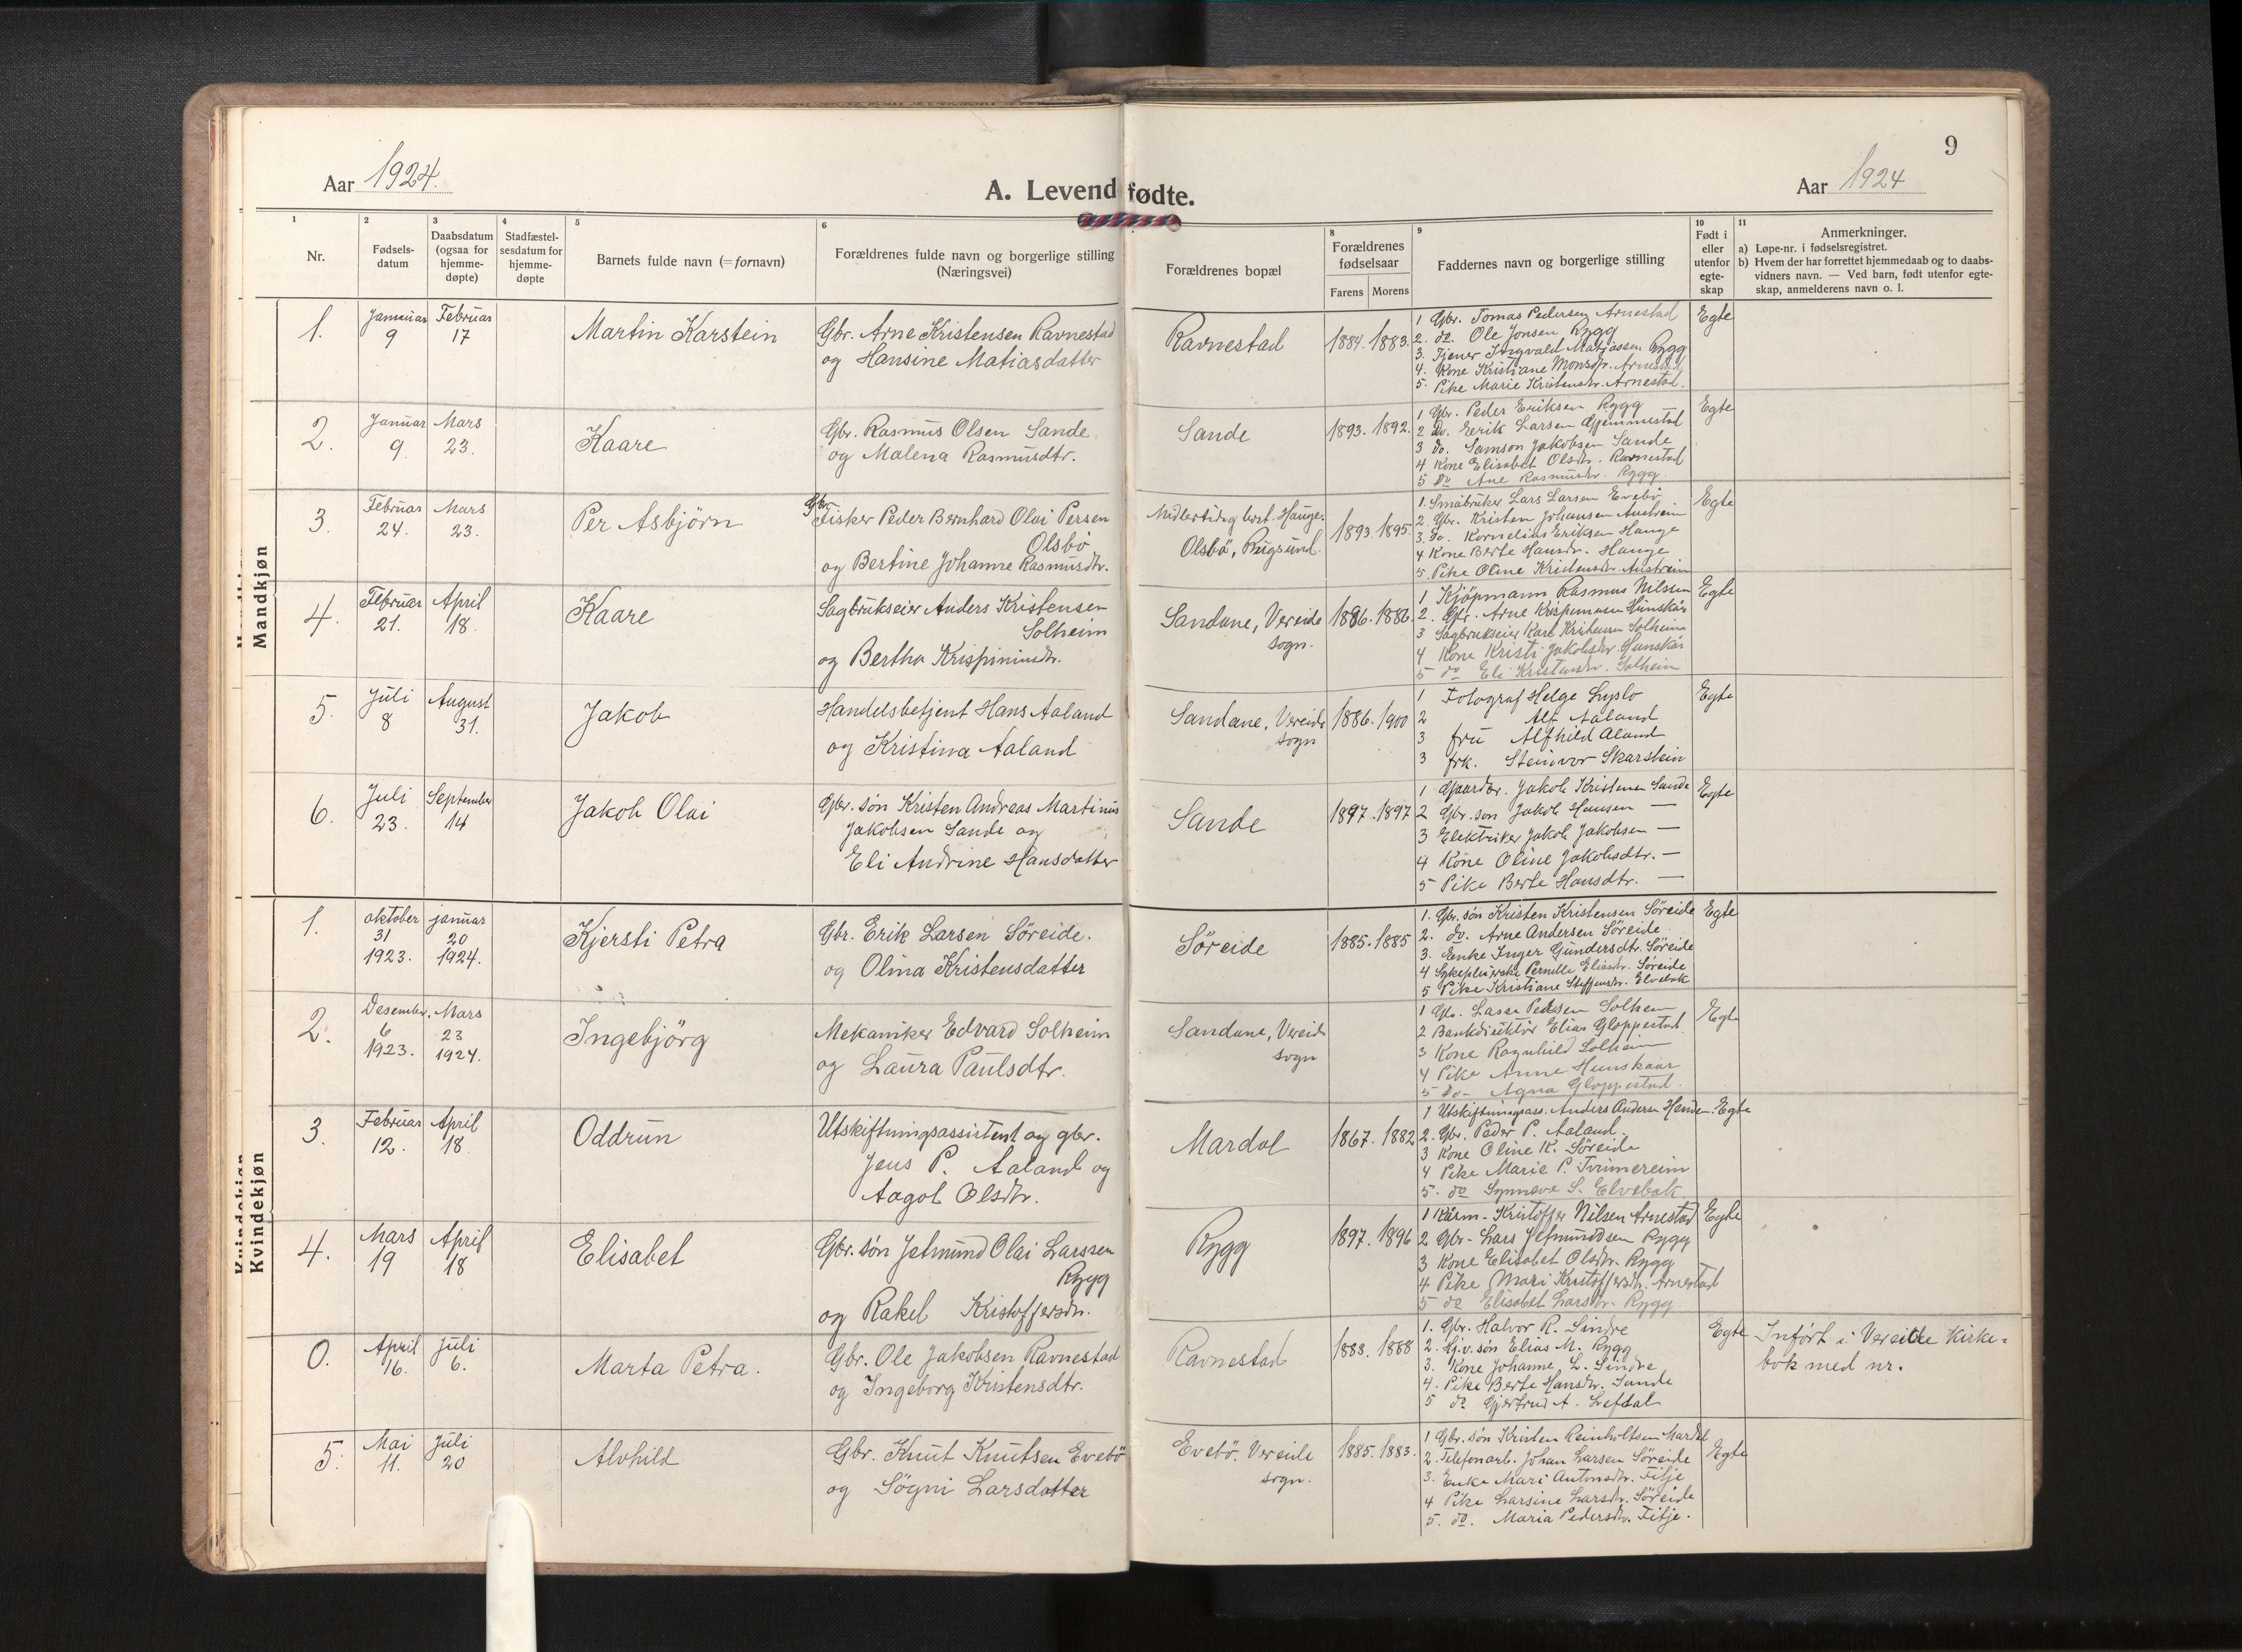 9
Aar 1924.
A. Levendefødte.
Aar 1924
1 2 3 4 5 6 8 9 10 11
Nr.
Fødsels-
datum
Daabsdatum
(ogsaa for
hjemme-
døpte)
Stadfæstel-
sesdatum for
hjemme-
døpte
Barnets fulde navn (= fornavn)
Forældrenes fulde navn og borgerlige stilling
(Næringsvei)
Forældrenes bopæl
Forældrenes
fødselsaar
Farens Morens
Faddernes navn og borgerlige stilling
Født i
eller
utenfor
egte-
skap
Anmerkninger.
a) Løpe-nr. i fødselsregistret.
b) Hvem der har forrettet hjemmedaab og to daabs-
vidners navn. — Ved barn, født utenfor egte-
skap, anmelderens navn o. l.
Mandkjøn
1.
Januar
9
Februar
17
Martin Karstein
Gbr. Arne Kristensen Ravnestad
og Hansine Matiasdatter
Ravnestad
1884. 1883.
1 Gbr. Tomas Pedersen Arnestad
2. do. Ole Jonsen Rygg
3. Tjener Ingvald Matiassen Rygg
4. Kone Kristiane Monsdr. Arnestad
5. Pike Marie Kristensdr. Arnestad.
Egte
2.
Januar
9.
Mars
23.
Kaare
Gbr. Rasmus Olsen Sande
og Malena Rasmusdtr.
Sande
1893. 1892.
1 Gbr. Peder Eriksen Rygg
2 do. Eerik Larsen Gjemmestad
3 do. Samson Jakobsen Sande
4 Kone Elisabet Olsdtr. Ravnestad
5 do Ane Rasmusdr. Rygg.
Egte
3.
Februar
24.
Mars
23.
Per Asbjörn
Gbr.
Fisker Peder Bernhard Olai Persen
Olsbö
og Bertine Johanne Rasmusdtr.
Midlertidig bost. Hauge.
Olsbö, Rugsund.
1893. 1895.
1. Småbruker Lars Larsen Evebö
2. Gbr. Kristen Johansen Austrein
3. do. Kornelius Eriksen Hauge
4 Kone Berte Hansdr. Hauge
5. Pike Oline Kristensdr. Austrein
Egte
4.
Februar
21.
April
18.
Kaare
Sagbrukseier Anders Kristensen
Solheim
og Bertha Krispinusdr.
Sandane, Vereide
sogn.
1886. 1886.
1 Kjöpmann Rasmus Nilssen
2. Gbr. Arne Krispinusen Hunskår
3 Sagbrukseier Karl Kristensen Solheim
4 Kone Kristi Jakobsdr. Hunskår
5 do Eli Kristensdr. Solheim
Egte
5.
Juli
8
August
31.
Jakob
Handelsbetjent Hans Aaland
og Kristina Aaland
Sandane, Vereide
sogn
1886. 1900
1 Fotograf Helge Lyslo
2 Alf Aaland
3 fru Alfhild Aland
3 frk. Steinvor Skarstein
Egte
6.
Juli
23.
September
14
Jakob Olai
Gbr. søn Kristen Andreas Martinus
Jakobsen Sande og
Eli Andrine Hansdatter
Sande
1897. 1897
1 Gaardbr. Jakob Kristensen Sande
2 Gbr. søn Jakob Hansen —
3 Elektriker Jakob Jakobsen —
4 Kone Oline Jakobsdtr. —
5 Pike Berte Hansdtr. —
Egte
Kvindekjøn
1.
oktober
31
1923.
januar
20
1924.
Kjersti Petra
Gbr. Erik Larsen Söreide.
og Olina Kristensdatter
Söreide
1885. 1885
1. Gbr. søn Kristen Kristensen Söreide
2. do. Arne Andersen Söreide.
3. Enke Inger Gundersdtr. Söreide
4 Sykepleierske Pernille Eliasdr. Söreide
5 Pike Kristiane Steffensdr. Elvebak
Egte
2.
Desember.
6
1923.
Mars
23
1924.
Ingebjörg
Mekaniker Edvard Solheim
og Laura Paulsdtr.
Sandane, Vereide
sogn
1 Gbr. Lasse Pedersen Solheim
2 Bankdirektör Elias Gloppestad.
3 Kone Ragnhild Solheim
4 Pike Anne Hunskaar
5 do- Agna Gloppestad.
Egte
3.
Februar
12.
April
18.
Oddrun
Utskiftningsassistent og gbr.
Jens P. Aaland og
Aagot Olsdtr.
Mardal
1867. 1882
1 Utskiftningsass. Anders Andersen Henden.
2. Gbr. Peder P. Aaland.
3 Kone Oline K. Söreide
4 Pike Marie P. Tvinnereim
5. do Synneve S. Elvebak
Egte
4.
Mars
19
April
18
Elisabet
Gbr. søn Jetmund Olai Larssen
Rygg
og Rakel Kristoffersdr.
Rygg
1897. 1896
1 Kårm. Kristoffer Nilsen Arnestad
2 Gbr. Lars Jetmundsen Rygg
3 Kone Elisabet Olsdtr. Rygg
4 Pike Mari Kristoffersdr. Arnestad
5 do Elisabet Larsdr. Rygg
Egte
0.
April
16.
Juli
6.
Marta Petra.
Gbr. Ole Jakobsen Ravnestad
og Ingeborg Kristensdtr.
Ravnestad
1883. 1888
1. Gbr. Halvor R. Sindre
2. Gj.v. søn Elias M. Rygg
3. Kone Johanne L. Sindre
4. Pike Berte Hansdr. Sande
5 do Gjertrud A. Lefdal
Egte
Infört i Vereide Kirke-
bok med nr.
5.
Mai
11.
Juli
20
Alvhild
Gbr. Knut Knutsen Evebö
og Sögni Larsdatter
Evebö, Vereide
sogn.
1885. 1883.
1 Gbr. søn Kristen Reinholtsen Mardal
2. Telefonarb. Johan Larsen Söreide
3. Enke Mari Antonsdr. Fitje
4 Pike Larsine Larsdr. Söreide
5. do. Maria Pedersdr. Fitje.
Egte